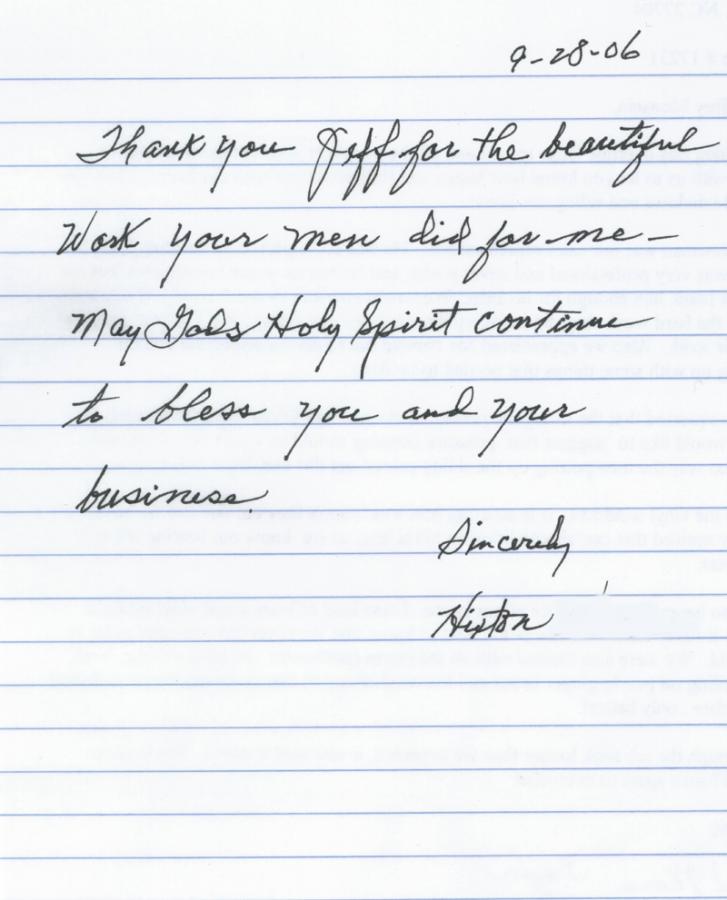 9-28-06
Thank you Jeff for the beautiful
Work your men did for me –
May Gods Holy Spirit continue
to bless you and your
business.
Sincerely
Hixton